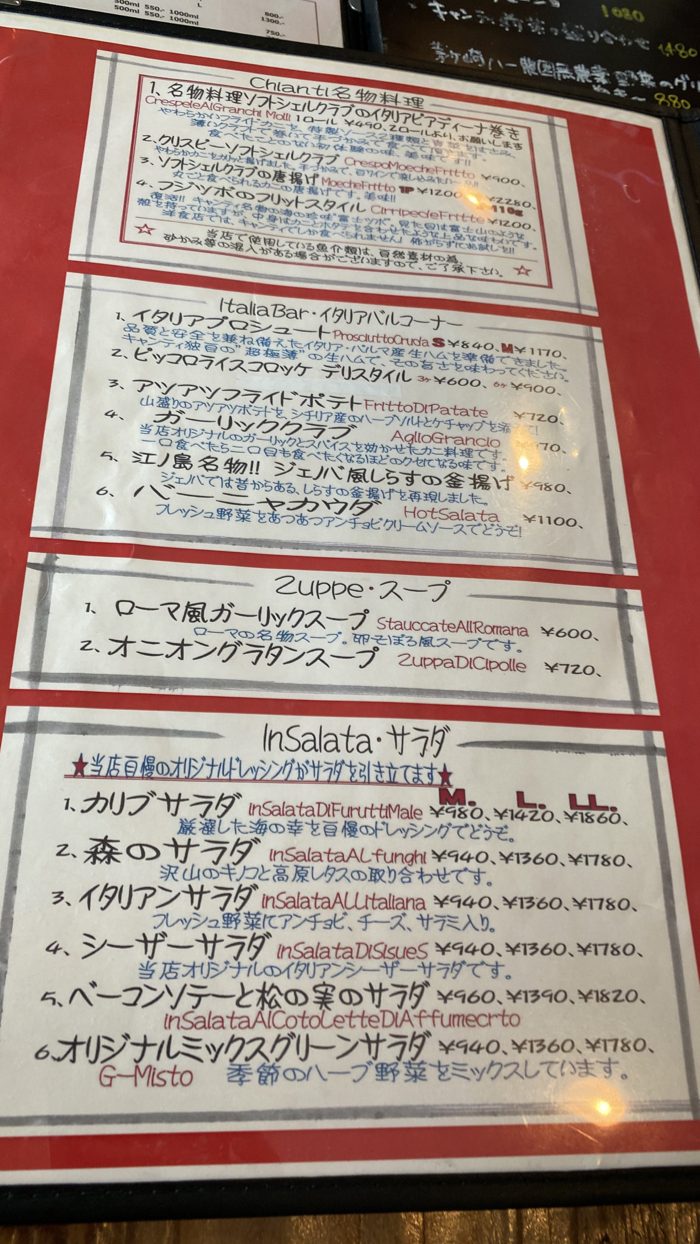 500ml 550.- 1000ml
800.-
1300.-
750.-
1080
1,480
880
Chianti名物料理
1、名物料理ソフトシェルクラブのイタリアピアディーナ巻き
CrespeleAlGranchi Molli 1ロール ¥490、2ロールより、お願いします
やわらかいソフトカニを、特製ソース2種類と香草をはさみ、
薄いクラフトで巻いて手づかみで食べて頂きます。
食べたことのない初体験の味、美味です!!
2、クリスピーソフトシェルクラブ CrespoMoecheFritto ¥900、
3、ソフトシェルクラブの唐揚げ MoecheFritto 1P ¥1200、 ¥2280、
丸ごと食べられるカニの唐揚げです。美味!!
4、フジツボのフリットスタイル CirripedeFritto ¥1200、
110g
復活!! キャンティ名物の海の珍味“富士ツボ。見た目は富士山のような
殻を持っていますが、中身はカニとホタテを合わせたような上品な味わいです。
洋食店では、キャンティでしか食べられません! 怖がらずにお試しを!!
☆ 当店で使用している魚介類は、自然素材の為、
砂かみ等の混入がある場合がございますので、ご了承下さい。☆
ItaliaBar・イタリアバルコーナー
1、イタリアプロシュート ProsciuttoCruda S ¥840、M ¥1170、
品質と安全を兼ね備えたイタリア・パルマ産生ハムを準備できました。
キャンティ独自の“超極薄”の生ハムで、その旨さを味わってください。
2、ピッコロライスコロッケ デリスタイル 3ヶ ¥600、6ヶ ¥900、
3、アツアツフライドポテト FrittoDiPatate ¥720、
山盛りのアツアツポテトを、シチリア産のハーブソルトとケチャップを添えて!
4、ガーリッククラブ AglioGrancio 70、
当店オリジナルのガーリックとスパイスを効かせたカニ料理です。
一口食べたら二口目も食べたくなるほどのクセになる味です。
5、江ノ島名物!! ジェノバ風しらすの釜揚げ ¥980、
ジェノバでは昔からある、しらすの釜揚げを再現しました。
6、バーニャカウダ HotSalata ¥1100、
フレッシュ野菜をあつあつアンチョビクリームソースでどうぞ!
Zuppe・スープ
1、ローマ風ガーリックスープ StauccateAllRomana ¥600、
ローマの名物スープ。卵そぼろ風スープです。
2、オニオングラタンスープ ZuppaDiCipolle ¥720、
InSalata・サラダ
★当店自慢のオリジナルドレッシングがサラダを引き立てます★
M. L. LL.
1、カリブサラダ InSalataDiFuruttiMale ¥980、¥1420、¥1860、
厳選した海の幸を自慢のドレッシングでどうぞ。
2、森のサラダ InSalataALfunghi ¥940、¥1360、¥1780、
沢山のキノコと高原レタスの取り合わせです。
3、イタリアンサラダ InSalataALLItaliana ¥940、¥1360、¥1780、
フレッシュ野菜にアンチョビ、チーズ、サラミ入り。
4、シーザーサラダ InSalataDiSisueS ¥940、¥1360、¥1780、
当店オリジナルのイタリアンシーザーサラダです。
5、ベーコンソテーと松の実のサラダ ¥960、¥1390、¥1820、
InSalataAlCotoLetteDiAffumecrto
6、オリジナルミックスグリーンサラダ ¥940、¥1360、¥1780、
G-Misto 季節のハーブ野菜をミックスしています。